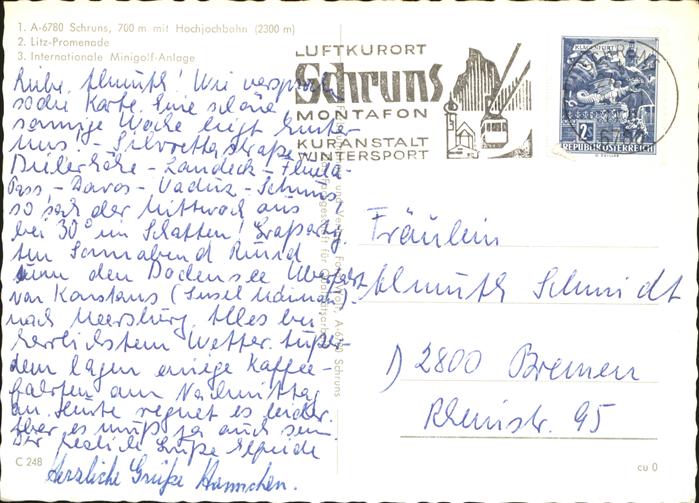 1. A-6780 Schruns, 700 m mit Hochjochbahn (2300 m)
2. Litz-Promenade
3. Internationale Minigolf-Anlage
LUFTKURORT
Schruns
MONTAFON
KURANSTALT
WINTERSPORT
KLAGENFURT
2S
REPUBLIK ÖSTERREICH
Almuth! Wie versprochen
so die Karte. Eine schöne
sonnige Woche liegt hinter
uns. - Silvretta Straße
Bielerhöhe - Landeck - Flüela-
Pass - Davos - Vaduz - Schruns
so sah der Mittwoch aus
bei 30° im Schatten! Großartig.
Sonnabend Rund
um den Bodensee Überfahrt
von Konstanz (Insel Mainau)
nach Meersburg. Alles bei
herrlichstem Wetter. Außer-
dem lagen einige Kaffee-
fahrten am Nachmittag
an. Heute regnet es leider.
Aber es muß ja auch sein.
Dir herzliche Grüße
Herzliche Grüße Hannchen.
Fräulein
Almuth Schmidt
D 2800 Bremen
Rheinstr. 95
C 248
cu 0